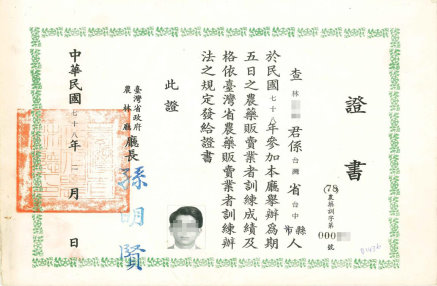 證書
(78)農藥訓字第
000
號
查 林 君係台灣省台中縣市人
於民國七十八年參加本廳舉辦為期
五日之農藥販賣業者訓練成績及
格依臺灣省農藥販賣業者訓練辦
法之規定發給證書
此證
臺灣省政府
農林廳 廳長 孫明賢
中華民國七十八年 月 日